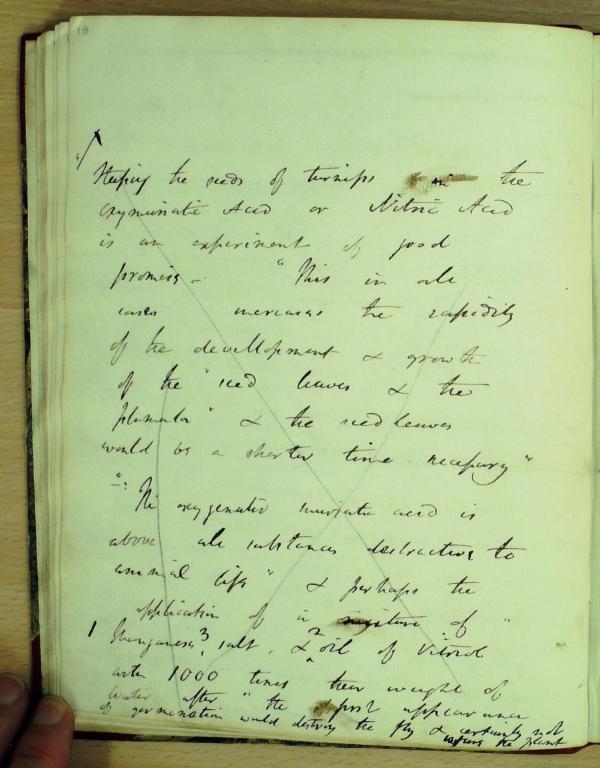 19
Steeping the seeds of turnips in the
Oxymuriatic Acid or Nitric Acid
is an experiment of good
promise - "This in all
cases increases the rapidity
of the development & growth
of the "seed leaves & the
plumula" & the seed leaves
would be a shorter time necessary"
": The oxygenated muriatic acid is
above all substances destructive to
animal life" & perhaps the
application of a mixture of "
1 Manganese, 3 salt, & 2 oil of Vitriol
with 1000 times their weight of
water after "the first appearance
of germination would destroy the fly & certainly not
injure the plant